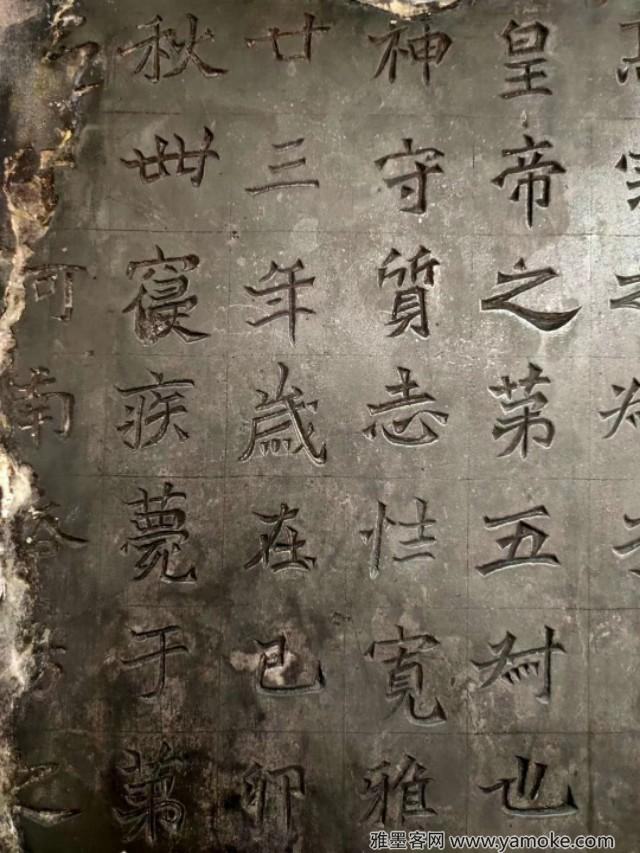 皇帝之苐五也
神守質志性寬雅
廿三年歲在己卯
秋卌寢疾薨于苐
河南之
雅墨客网 www.yamoke.com